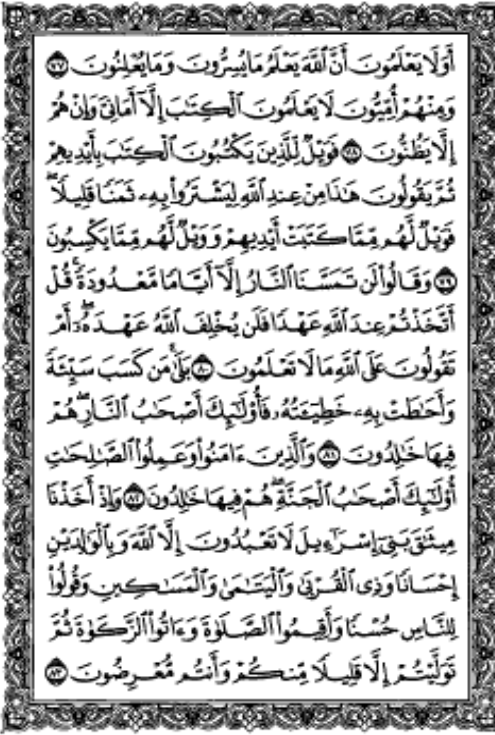 أَوَلَا يَعْلَمُونَ أَنَّ ٱللَّهَ يَعْلَمُ مَا يُسِرُّونَ وَمَا يُعْلِنُونَ ٧٧
وَمِنْهُمْ أُمِّيُّونَ لَا يَعْلَمُونَ ٱلْكِتَٰبَ إِلَّآ أَمَانِىَّ وَإِنْ هُمْ
إِلَّا يَظُنُّونَ ٧٨ فَوَيْلٌ لِّلَّذِينَ يَكْتُبُونَ ٱلْكِتَٰبَ بِأَيْدِيهِمْ
ثُمَّ يَقُولُونَ هَٰذَا مِنْ عِندِ ٱللَّهِ لِيَشْتَرُوا۟ بِهِۦ ثَمَنًا قَلِيلًا ۖ
فَوَيْلٌ لَّهُم مِّمَّا كَتَبَتْ أَيْدِيهِمْ وَوَيْلٌ لَّهُم مِّمَّا يَكْسِبُونَ
٧٩ وَقَالُوا۟ لَن تَمَسَّنَا ٱلنَّارُ إِلَّآ أَيَّامًا مَّعْدُودَةً ۚ قُلْ
أَتَّخَذْتُمْ عِندَ ٱللَّهِ عَهْدًا فَلَن يُخْلِفَ ٱللَّهُ عَهْدَهُۥٓ ۖ أَمْ
تَقُولُونَ عَلَى ٱللَّهِ مَا لَا تَعْلَمُونَ ٨٠ بَلَىٰ مَن كَسَبَ سَيِّئَةً
وَأَحَٰطَتْ بِهِۦ خَطِيٓـَٔتُهُۥ فَأُو۟لَٰٓئِكَ أَصْحَٰبُ ٱلنَّارِ ۖ هُمْ
فِيهَا خَٰلِدُونَ ٨١ وَٱلَّذِينَ ءَامَنُوا۟ وَعَمِلُوا۟ ٱلصَّٰلِحَٰتِ
أُو۟لَٰٓئِكَ أَصْحَٰبُ ٱلْجَنَّةِ ۖ هُمْ فِيهَا خَٰلِدُونَ ٨٢ وَإِذْ أَخَذْنَا
مِيثَٰقَ بَنِىٓ إِسْرَٰٓءِيلَ لَا تَعْبُدُونَ إِلَّا ٱللَّهَ وَبِٱلْوَٰلِدَيْنِ
إِحْسَانًا وَذِى ٱلْقُرْبَىٰ وَٱلْيَتَٰمَىٰ وَٱلْمَسَٰكِينِ وَقُولُوا۟
لِلنَّاسِ حُسْنًا وَأَقِيمُوا۟ ٱلصَّلَوٰةَ وَءَاتُوا۟ ٱلزَّكَوٰةَ ثُمَّ
تَوَلَّيْتُمْ إِلَّا قَلِيلًا مِّنكُمْ وَأَنتُم مُّعْرِضُونَ ٨٣